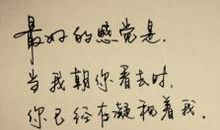 最好的感觉是，
当我朝你看去时，
你已经在凝视着我。